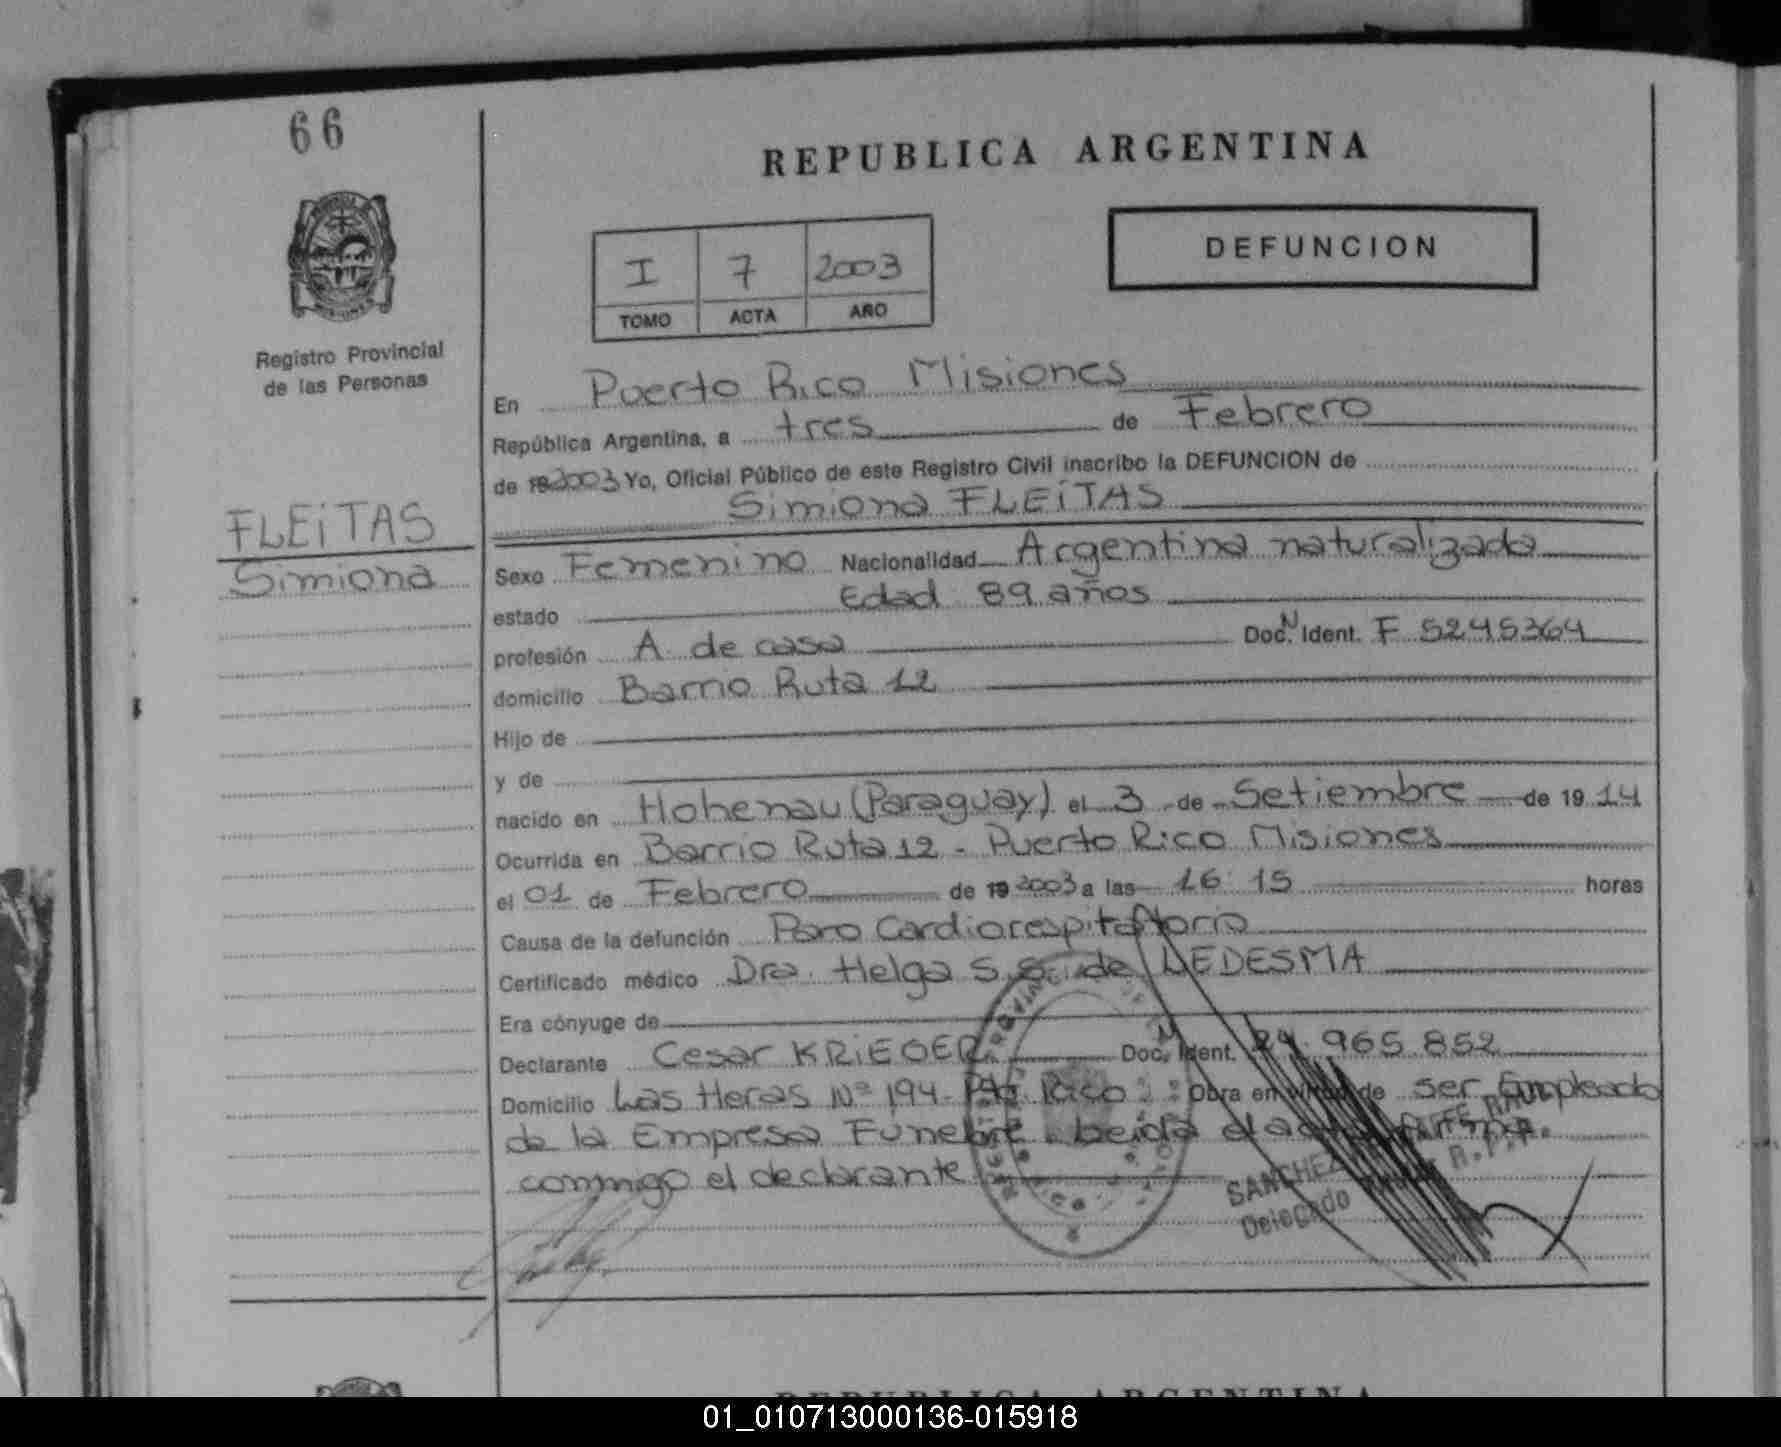 66
REPUBLICA ARGENTINA
I 7 2003
TOMO ACTA AÑO
DEFUNCION
Registro Provincial
de las Personas
FLEiTAS
Simiona
En Puerto Rico Misiones
República Argentina, a tres de Febrero
de 2003 Yo, Oficial Público de este Registro Civil inscribo la DEFUNCION de
Simiona FLEiTAS
Sexo Femenino Nacionalidad Argentina naturalizada
estado Edad 89 años
profesión A. de casa Doc. N Ident. F 5245364
domicilio Barrio Ruta 12
Hijo de
y de
nacido en Hohenau (Paraguay) el 3 de Setiembre de 19 14
Ocurrida en Barrio Ruta 12 - Puerto Rico Misiones
el 01 de Febrero de 19 2003 a las 16:15 horas
Causa de la defunción Paro Cardiorespitatorio
Certificado médico Dra. Helga S. S. de LEDESMA
Era cónyuge de
Declarante Cesar KRiEGER Doc. N Ident. 24.965.852
Domicilio Las Heras Nº 194 - Pto. Rico. Obra en virtud de ser Empleado
de la Empresa Funebre. Leida el acta firma
conmigo el declarante
SANCHEZ RAUL
Delegado R.P.P.
REPUBLICA ARGENTINA
01_010713000136-015918